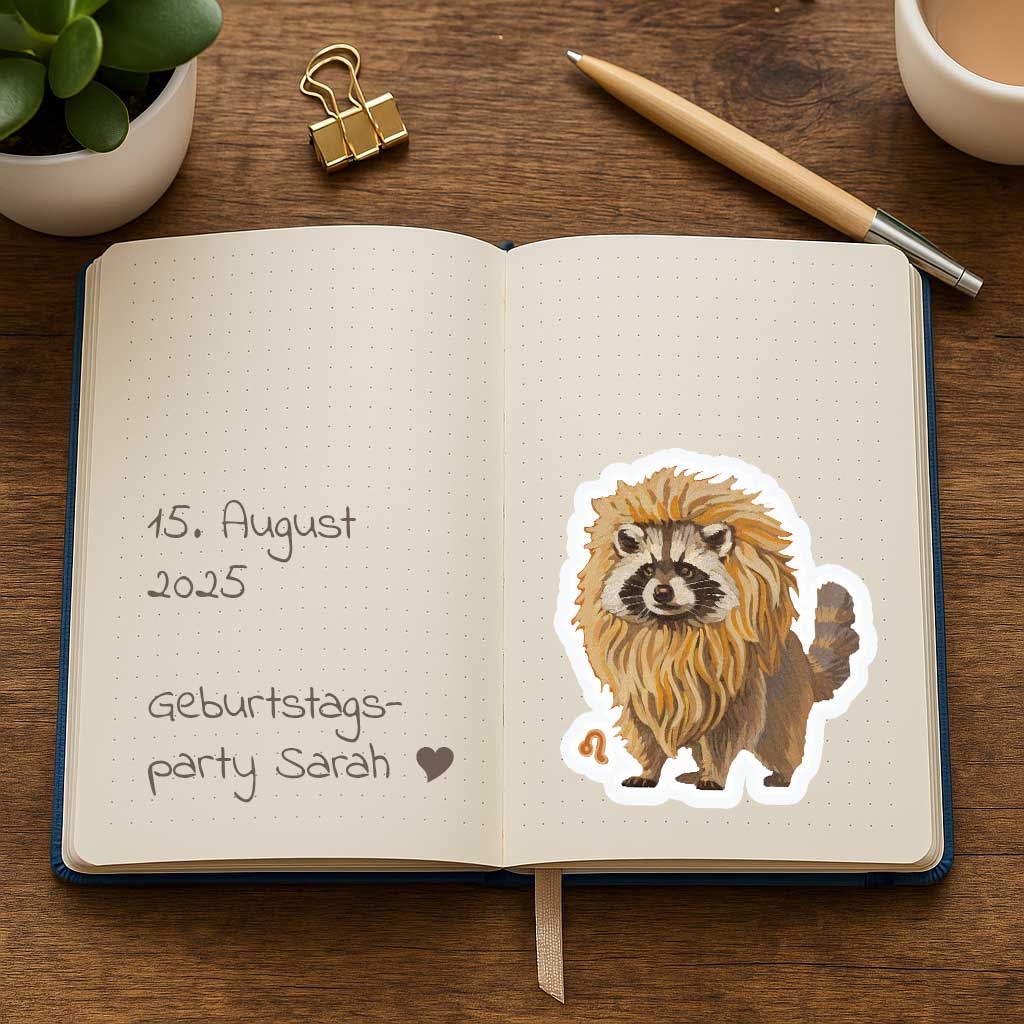 15. August
2025
Geburtstags-
party Sarah ♥
♌